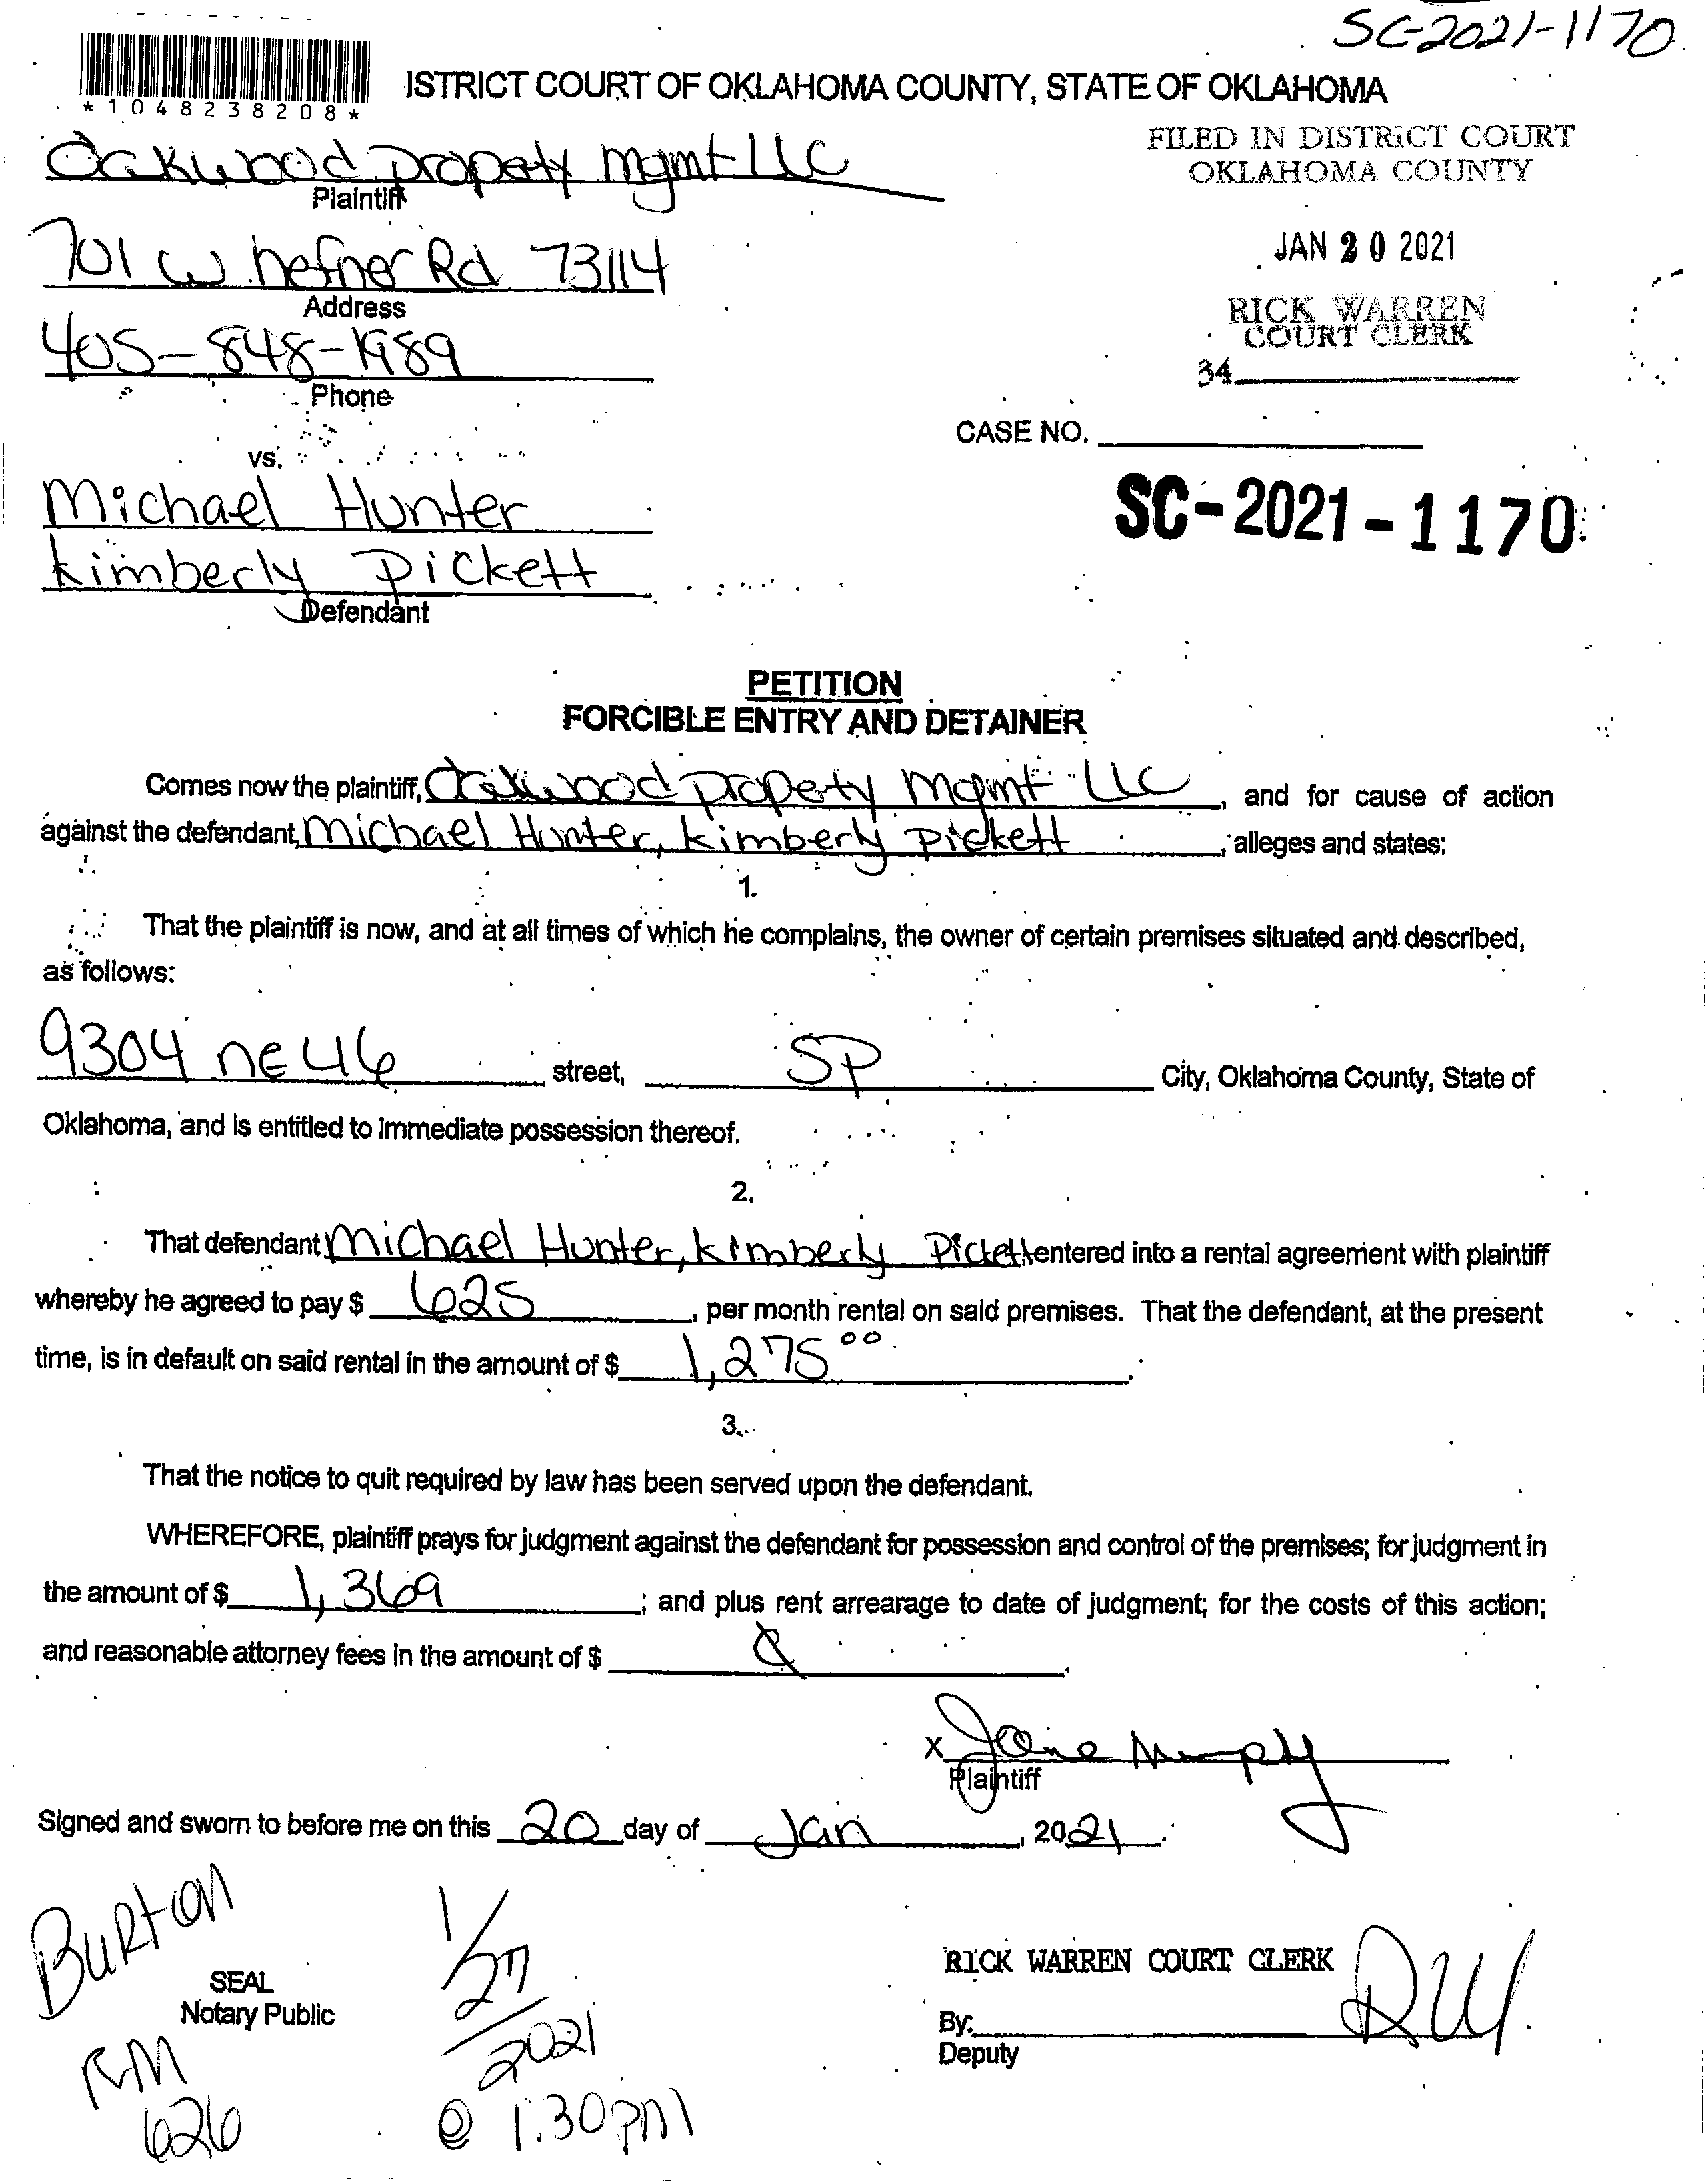 SC-2021-1170
ISTRICT COURT OF OKLAHOMA COUNTY, STATE OF OKLAHOMA
*1048238208*
Oakwood Property Mgmt LLC
Plaintiff
FILED IN DISTRICT COURT
OKLAHOMA COUNTY
701 W hefner Rd 73114
Address
JAN 20 2021
405-848-1989
Phone
RICK WARREN
COURT CLERK
34
CASE NO.
vs.
Michael Hunter
SC-2021-1170
Kimberly Pickett
Defendant
PETITION
FORCIBLE ENTRY AND DETAINER
Comes now the plaintiff, Oakwood Property Mgmt LLC, and for cause of action
against the defendant, Michael Hunter, Kimberly Pickett, alleges and states:
1.
That the plaintiff is now, and at all times of which he complains, the owner of certain premises situated and described,
as follows:
9304 NE 46 street, SP City, Oklahoma County, State of
Oklahoma, and is entitled to immediate possession thereof.
2.
That defendant Michael Hunter, Kimberly Pickett entered into a rental agreement with plaintiff
whereby he agreed to pay $ 625, per month rental on said premises. That the defendant, at the present
time, is in default on said rental in the amount of $ 1,275 00.
3.
That the notice to quit required by law has been served upon the defendant.
WHEREFORE, plaintiff prays for judgment against the defendant for possession and control of the premises; for judgment in
the amount of $ 1,369; and plus rent arrearage to date of judgment; for the costs of this action;
and reasonable attorney fees in the amount of $
x Jane Murphy
Plaintiff
Signed and sworn to before me on this 20 day of Jan, 2021.
Burton
SEAL
Notary Public
RM
626
1/27/2021
@ 1:30pm
RICK WARREN COURT CLERK
By:
Deputy